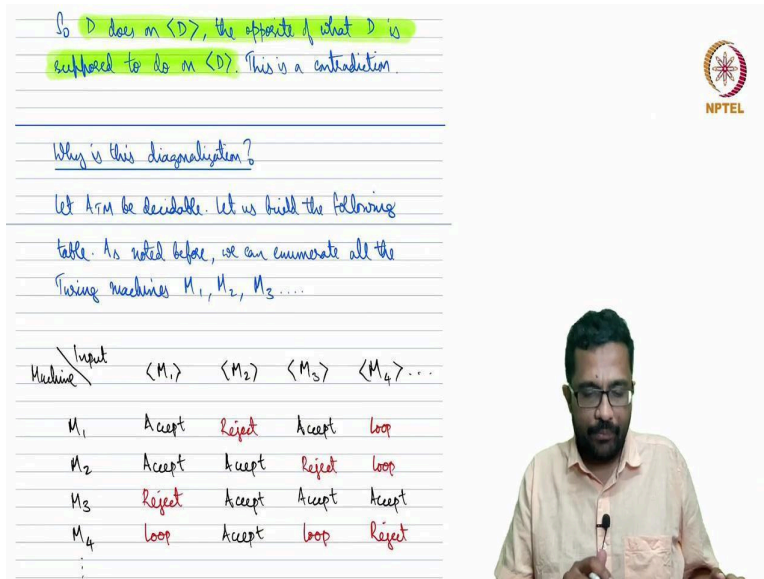 So D does on ⟨D⟩, the opposite of what D is
supposed to do on ⟨D⟩. This is a contradiction.
NPTEL
Why is this diagonalization?
Let A_TM be decidable. Let us build the following
table. As noted before, we can enumerate all the
Turing machines M₁, M₂, M₃ ....
Machine \ Input ⟨M₁⟩ ⟨M₂⟩ ⟨M₃⟩ ⟨M₄⟩ ...
M₁ Accept Reject Accept Loop
M₂ Accept Accept Reject Loop
M₃ Reject Accept Accept Accept
M₄ Loop Accept Loop Reject
⋮